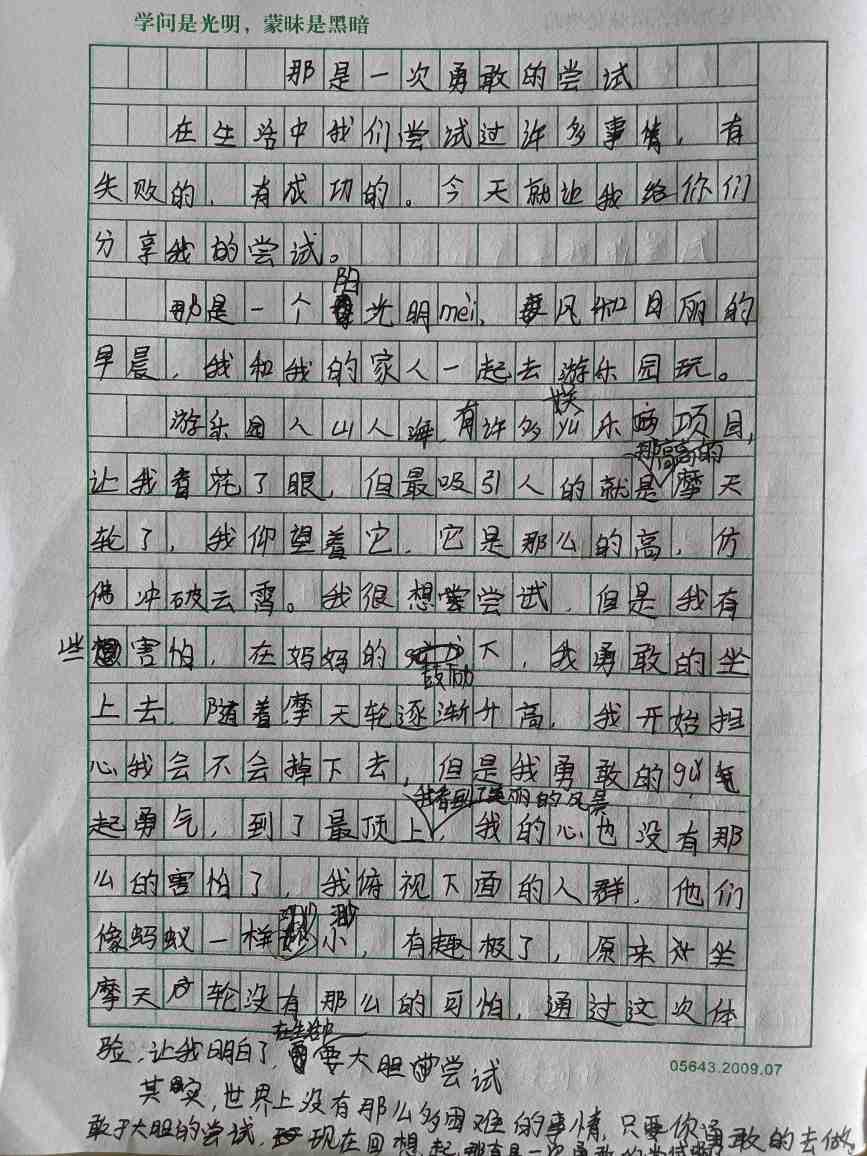 学问是光明，蒙昧是黑暗
那是一次勇敢的尝试
在生活中我们尝试过许多事情，有
失败的，有成功的。今天就让我给你们
分享我的尝试。
那是一个阳光明mei，风和日丽的
早晨，我和我的家人一起去游乐园玩。
游乐园人山人海，有许多娱乐项目，
让我看花了眼，但最吸引人的就是那高高的摩天
轮了，我仰望着它，它是那么的高，仿
佛冲破云霄。我很想尝试，但是我有
些害怕，在妈妈的鼓励下，我勇敢的坐
上去，随着摩天轮逐渐升高，我开始担
心我会不会掉下去，但是我勇敢的
起勇气，到了最顶上，我看到了美丽的风景，我的心也没有那
么的害怕了，我俯视下面的人群，他们
像蚂蚁一样渺小，有趣极了，原来坐
摩天轮没有那么的可怕，通过这次体
验，让我明白了，在生活中要大胆尝试
05643.2009.07
其实，世界上没有那么多困难的事情，只要你勇敢的去做，
敢于大胆的尝试，现在回想起，那真是一次勇敢的尝试啊